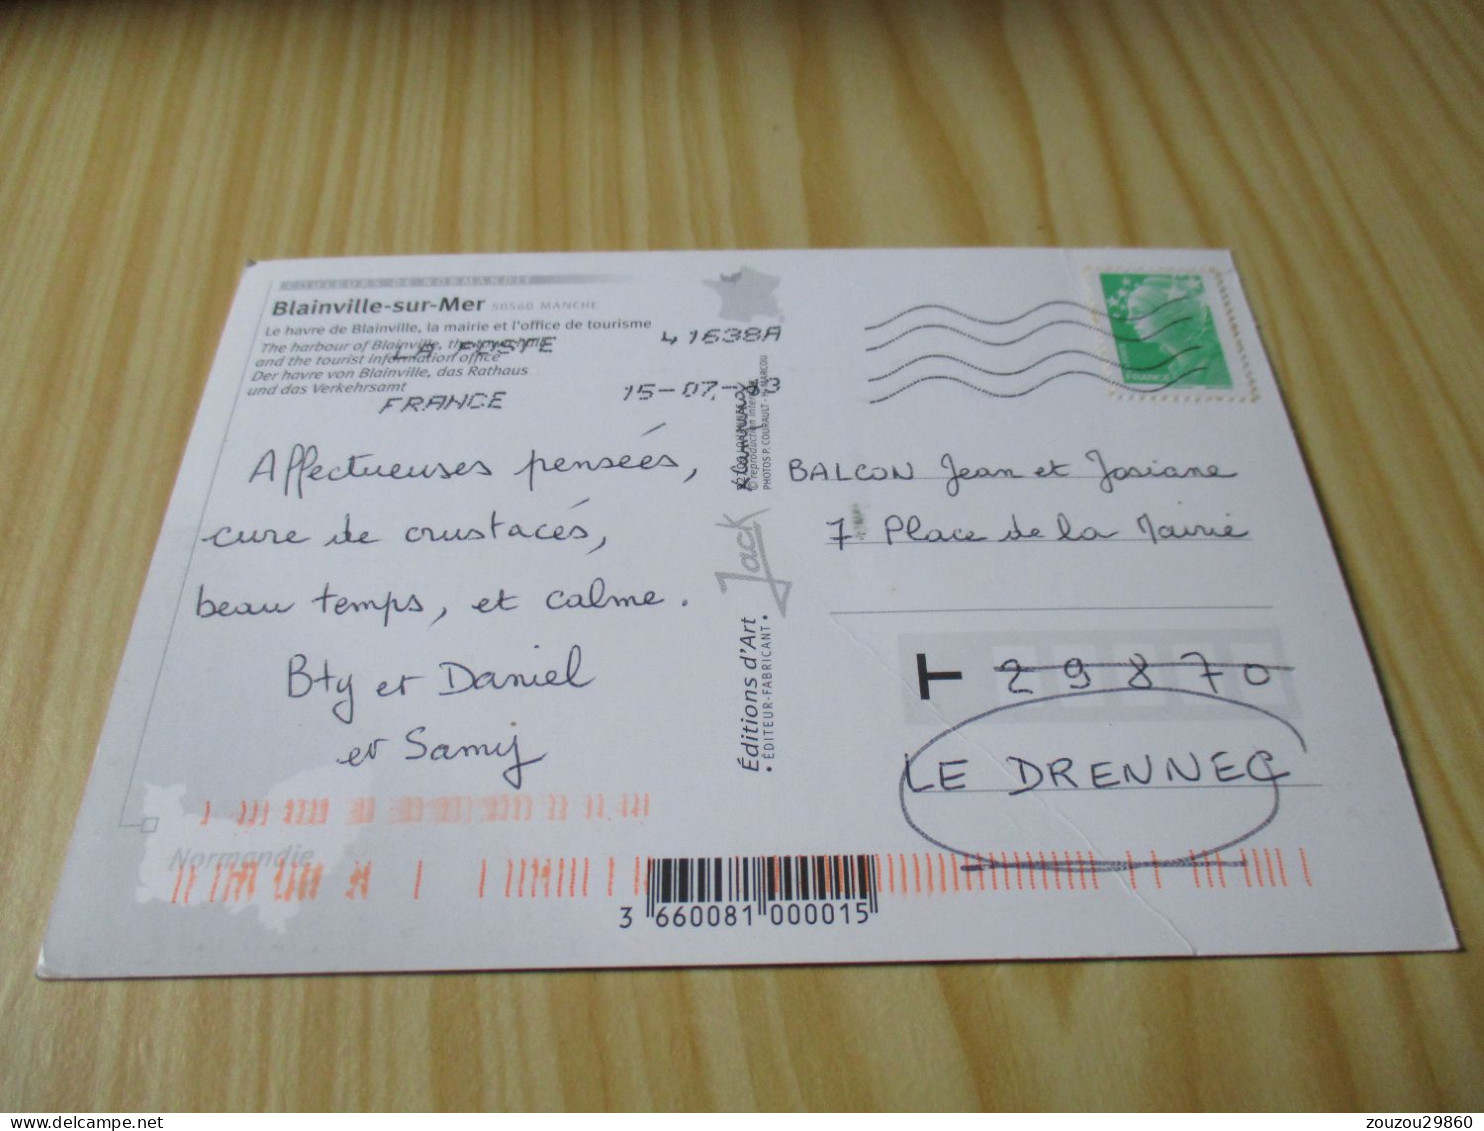 COULEURS DE NORMANDIE
Blainville-sur-Mer 50560 MANCHE
Le havre de Blainville, la mairie et l'office de tourisme
The harbour of Blainville, the town hall
and the tourist information office
Der havre von Blainville, das Rathaus
und das Verkehrsamt
LA POSTE 41638A
FRANCE 15-07-
Affectueuses pensées,
cure de crustacés,
beau temps, et calme.
Bty et Daniel
et Samy
Normandie
© reproduction interdite
PHOTOS P. COURAULT - H. MARCOU
Jack
Éditions d'Art
• ÉDITEUR-FABRICANT •
BALCON Jean et Josiane
7 Place de la Mairie
T 29870
LE DRENNEC
3 660081 000015
zouzou29860